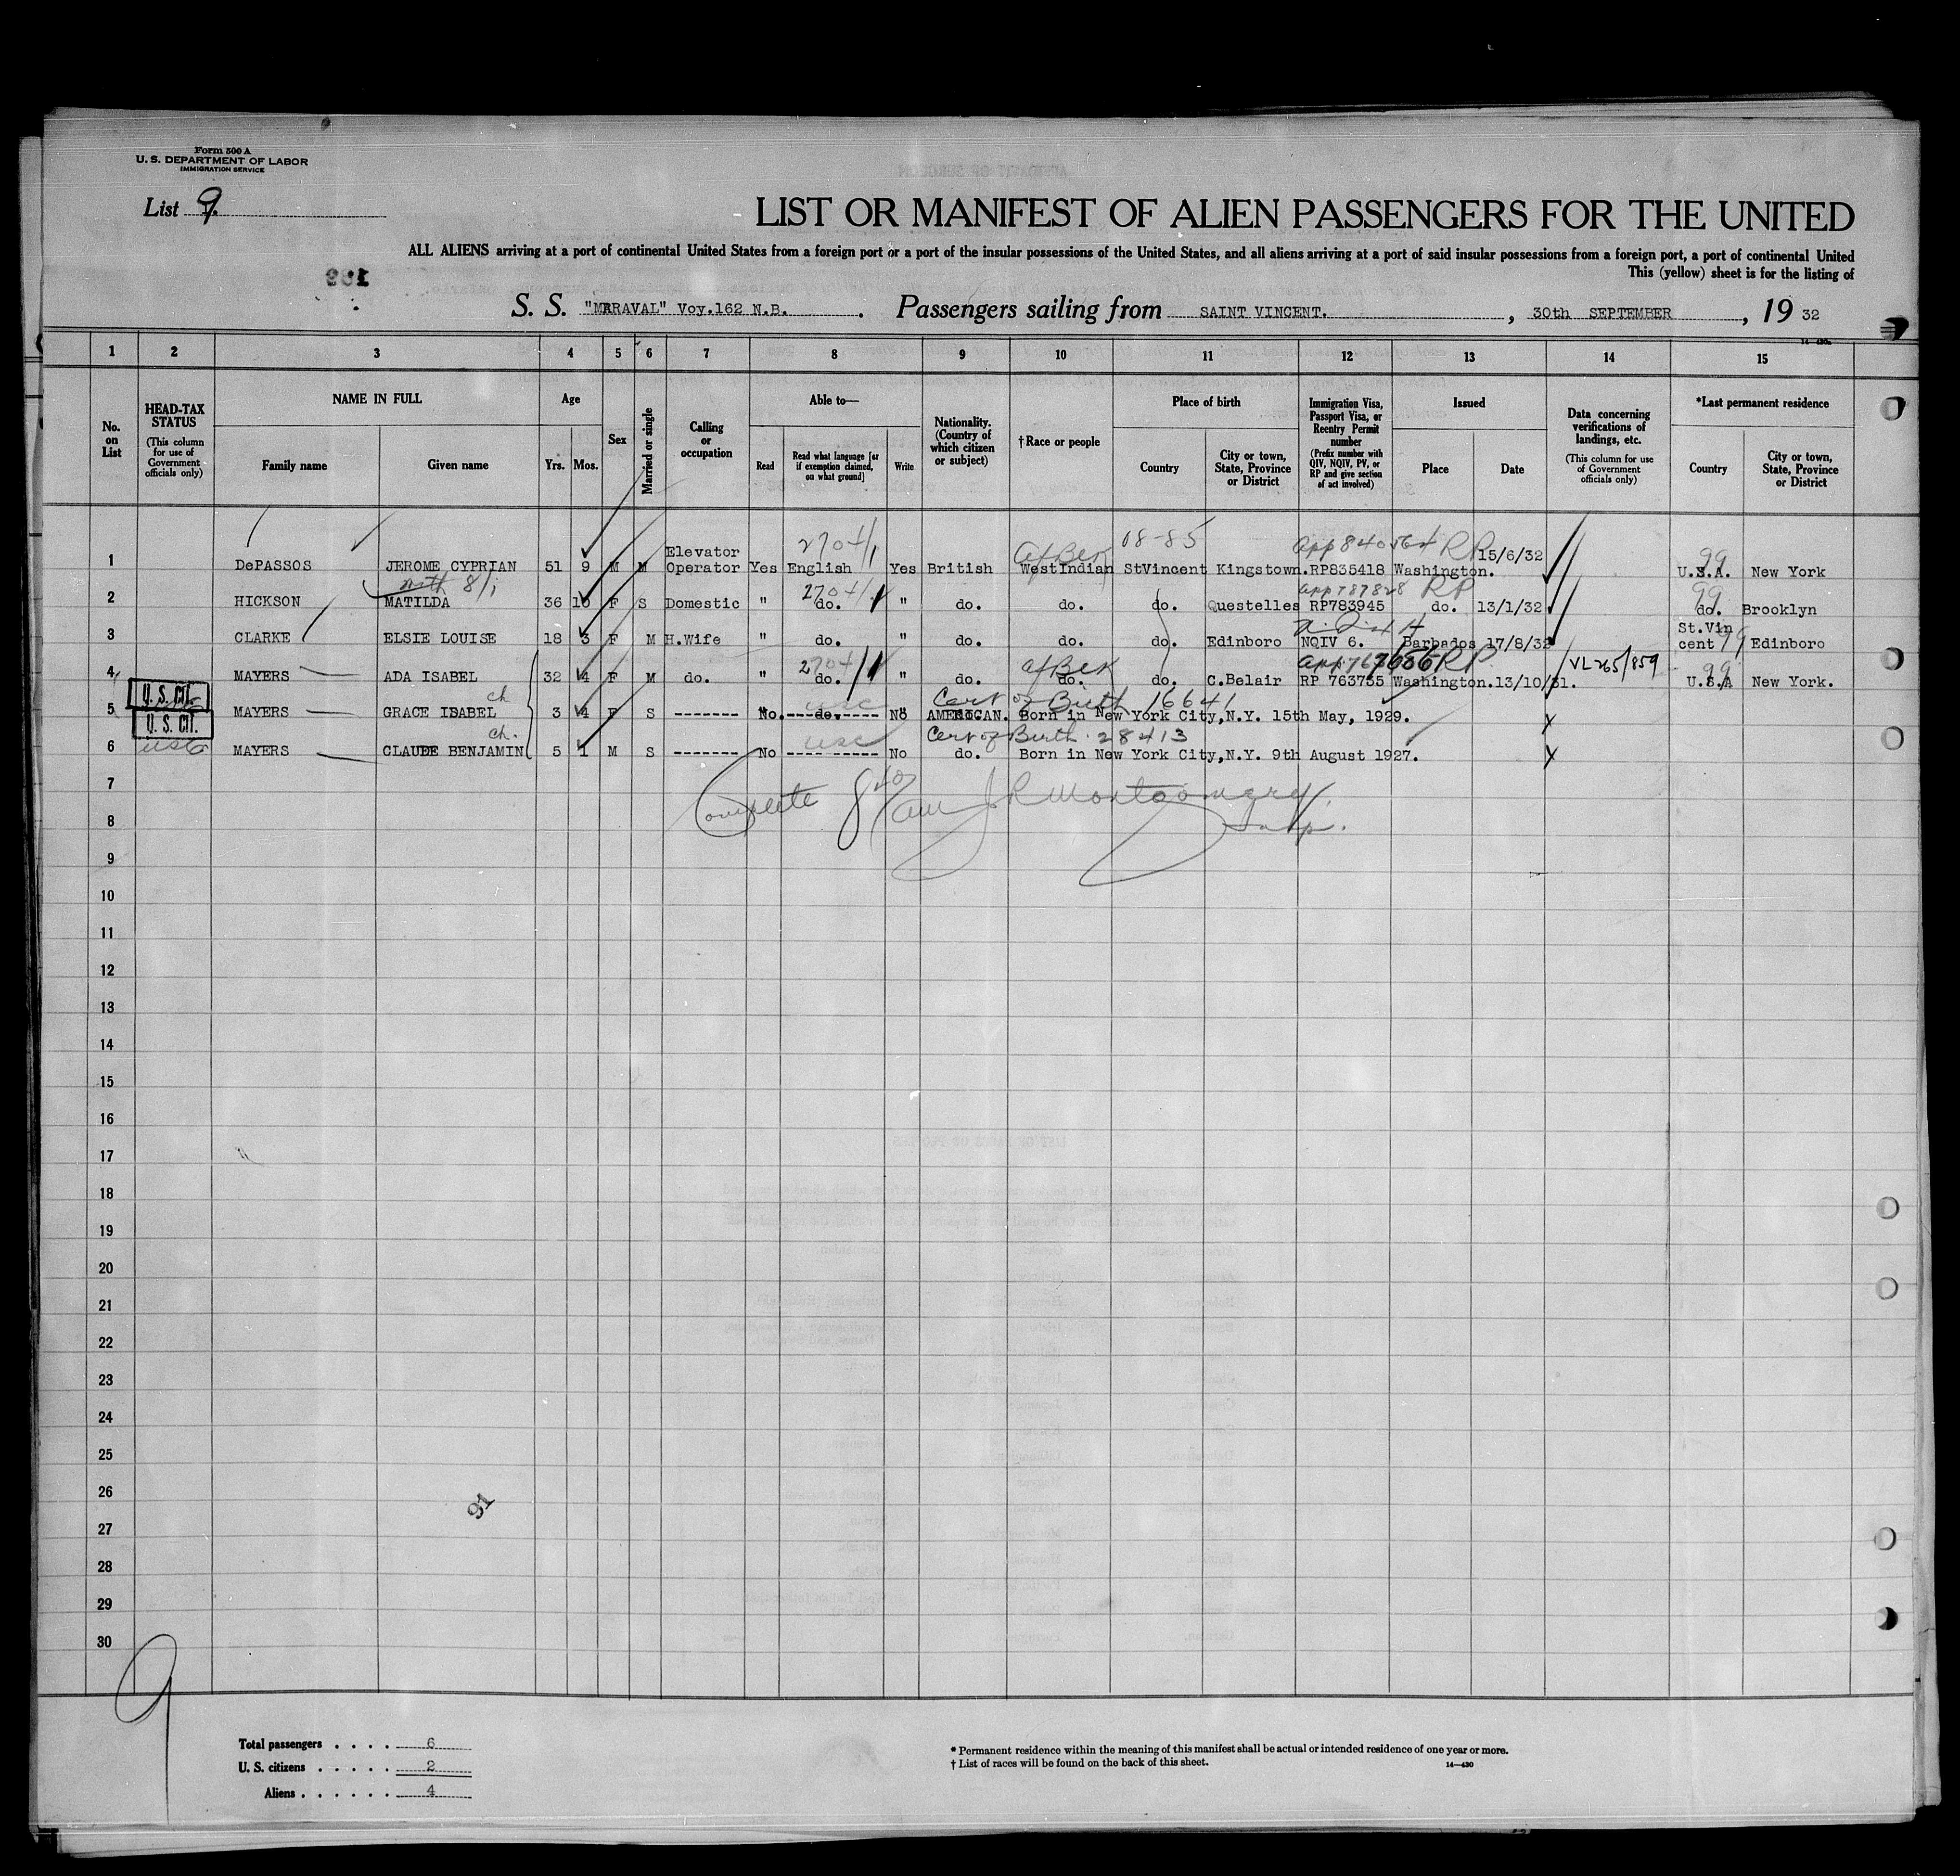 Form 500 A
U. S. DEPARTMENT OF LABOR
IMMIGRATION SERVICE
List 9.
LIST OR MANIFEST OF ALIEN PASSENGERS FOR THE UNITED
ALL ALIENS arriving at a port of continental United States from a foreign port or a port of the insular possessions of the United States, and all aliens arriving at a port of said insular possessions from a foreign port, a port of continental United
This (yellow) sheet is for the listing of
S. S. "MARAVAL" Voy.162 N.B. Passengers sailing from SAINT VINCENT. , 30th SEPTEMBER , 19 32
1 2 3 4 5 6 7 8 9 10 11 12 13 14 15
No. on List
HEAD-TAX STATUS (This column for use of Government officials only)
NAME IN FULL
Family name Given name
Age
Yrs. Mos.
Sex
Married or single
Calling or occupation
Able to—
Read Read what language [or if exemption claimed, on what ground] Write
Nationality. (Country of which citizen or subject)
† Race or people
Place of birth
Country City or town, State, Province or District
Immigration Visa, Passport Visa, or Reentry Permit number (Prefix number with QIV, NQIV, PV, or RP and give section of act involved)
Issued
Place Date
Data concerning verifications of landings, etc. (This column for use of Government officials only)
*Last permanent residence
Country City or town, State, Province or District
2704/1 Af Blk 08-85 App 840564 RP 99
1 DePASSOS JEROME CYPRIAN 51 9 M M Elevator Operator Yes English Yes British WestIndian StVincent Kingstown. RP835418 Washington. 15/6/32 U.S.A. New York
8/1 2704/1 App 787828 RP 99
2 HICKSON MATILDA 36 10 F S Domestic " do. " do. do. do. Questelles RP783945 do. 13/1/32 do. Brooklyn
3 CLARKE ELSIE LOUISE 18 3 F M H.Wife " do. " do. do. do. Edinboro NQIV 6. Barbados 17/8/32 St.Vin cent Edinboro
2704/1 Af Blk RP VL265/859 99
4 MAYERS ADA ISABEL 32 4 F M do. " do. " do. do. do. C.Belair RP 763755 Washington. 13/10/31. U.S.A New York.
U. S. CIT. ch usc Cert of Birth 16641
5 MAYERS GRACE ISABEL 3 4 F S ------- No. do. No AMERICAN. Born in New York City,N.Y. 15th May, 1929. X
U. S. CIT. ch. usc Cert of Birth 28413
6 usc MAYERS CLAUDE BENJAMIN 5 1 M S ------- No ---------- No do. Born in New York City,N.Y. 9th August 1927. X
7
Complete 8 40/am J R Montgomery
8 Insp.
9
10
11
12
13
14
15
16
17
18
19
20
21
22
23
24
25
26
91
27
28
29
30
9
Total passengers . . . . 6
U. S. citizens . . . . . 2
Aliens . . . . . . 4
* Permanent residence within the meaning of this manifest shall be actual or intended residence of one year or more.
† List of races will be found on the back of this sheet.
14—430